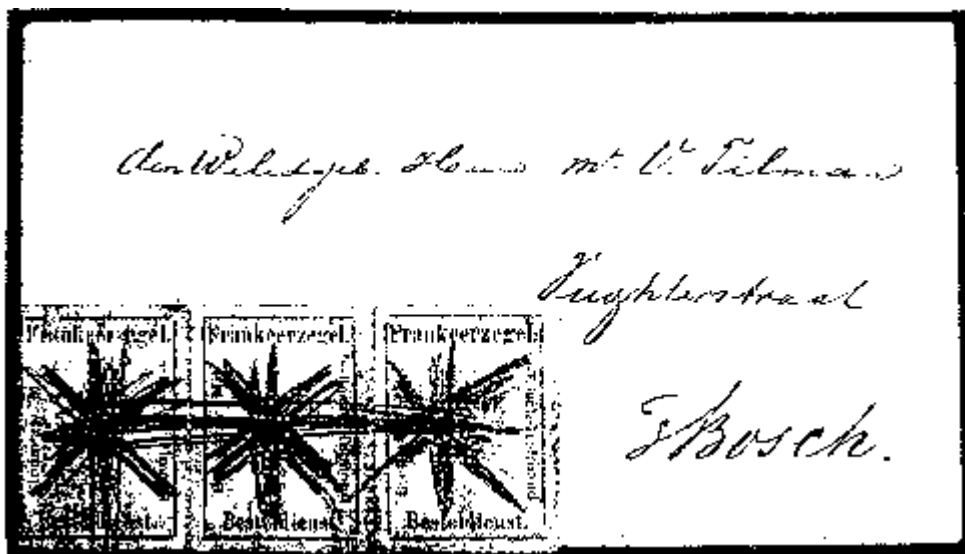 den Weledgeb. Heer Mr. V. Tilman
Vughterstraat
Frankeerzegel. Frankeerzegel. Frankeerzegel.
's Bosch.
Besteldienst. Besteldienst. Besteldienst.